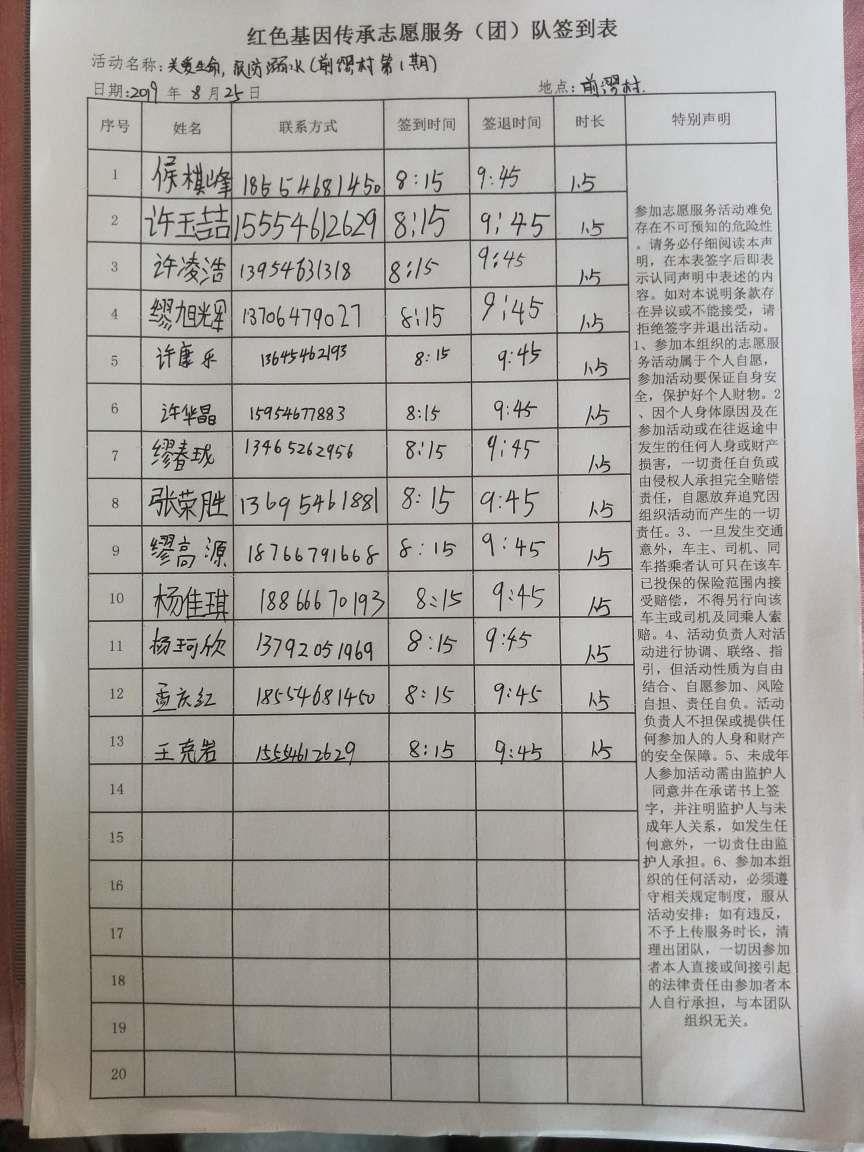 红色基因传承志愿服务（团）队签到表
活动名称：关爱生命，预防溺水（前缪村第1期）
日期：2019年8月25日 地点：前缪村.
序号 姓名 联系方式 签到时间 签退时间 时长 特别声明
1 侯棋峰 18554681450 8:15 9:45 1.5
2 许玉喆 15554612629 8:15 9:45 1.5
3 许凌浩 13954631318 8:15 9:45 1.5
4 缪旭光 13706479027 8:15 9:45 1.5
5 许康乐 13645462193 8:15 9:45 1.5
6 许华晶 15954677883 8:15 9:45 1.5
7 缪春珑 13465262956 8:15 9:45 1.5
8 张荣胜 13695461881 8:15 9:45 1.5
9 缪高源 18766791668 8:15 9:45 1.5
10 杨佳琪 18866670193 8:15 9:45 1.5
11 杨珂欣 13792051969 8:15 9:45 1.5
12 孟庆红 18554681450 8:15 9:45 1.5
13 王克岩 15554612629 8:15 9:45 1.5
14
15
16
17
18
19
20
参加志愿服务活动难免
存在不可预知的危险性
。请务必仔细阅读本声
明，在本表签字后即表
示认同声明中表述的内
容。如对本说明条款存
在异议或不能接受，请
拒绝签字并退出活动。
1、参加本组织的志愿服
务活动属于个人自愿，
参加活动要保证自身安
全，保护好个人财物。2
、因个人身体原因及在
参加活动或在往返途中
发生的任何人身或财产
损害，一切责任自负或
由侵权人承担完全赔偿
责任，自愿放弃追究因
组织活动而产生的一切
责任。3、一旦发生交通
意外，车主、司机、同
车搭乘者认可只在该车
已投保的保险范围内接
受赔偿，不得另行向该
车主或司机及同乘人索
赔。4、活动负责人对活
动进行协调、联络、指
引，但活动性质为自由
结合、自愿参加、风险
自担、责任自负。活动
负责人不担保或提供任
何参加人的人身和财产
的安全保障。5、未成年
人参加活动需由监护人
同意并在承诺书上签
字，并注明监护人与未
成年人关系，如发生任
何意外，一切责任由监
护人承担。6、参加本组
织的任何活动，必须遵
守相关规定制度，服从
活动安排；如有违反，
不予上传服务时长，清
理出团队，一切因参加
者本人直接或间接引起
的法律责任由参加者本
人自行承担，与本团队
组织无关。